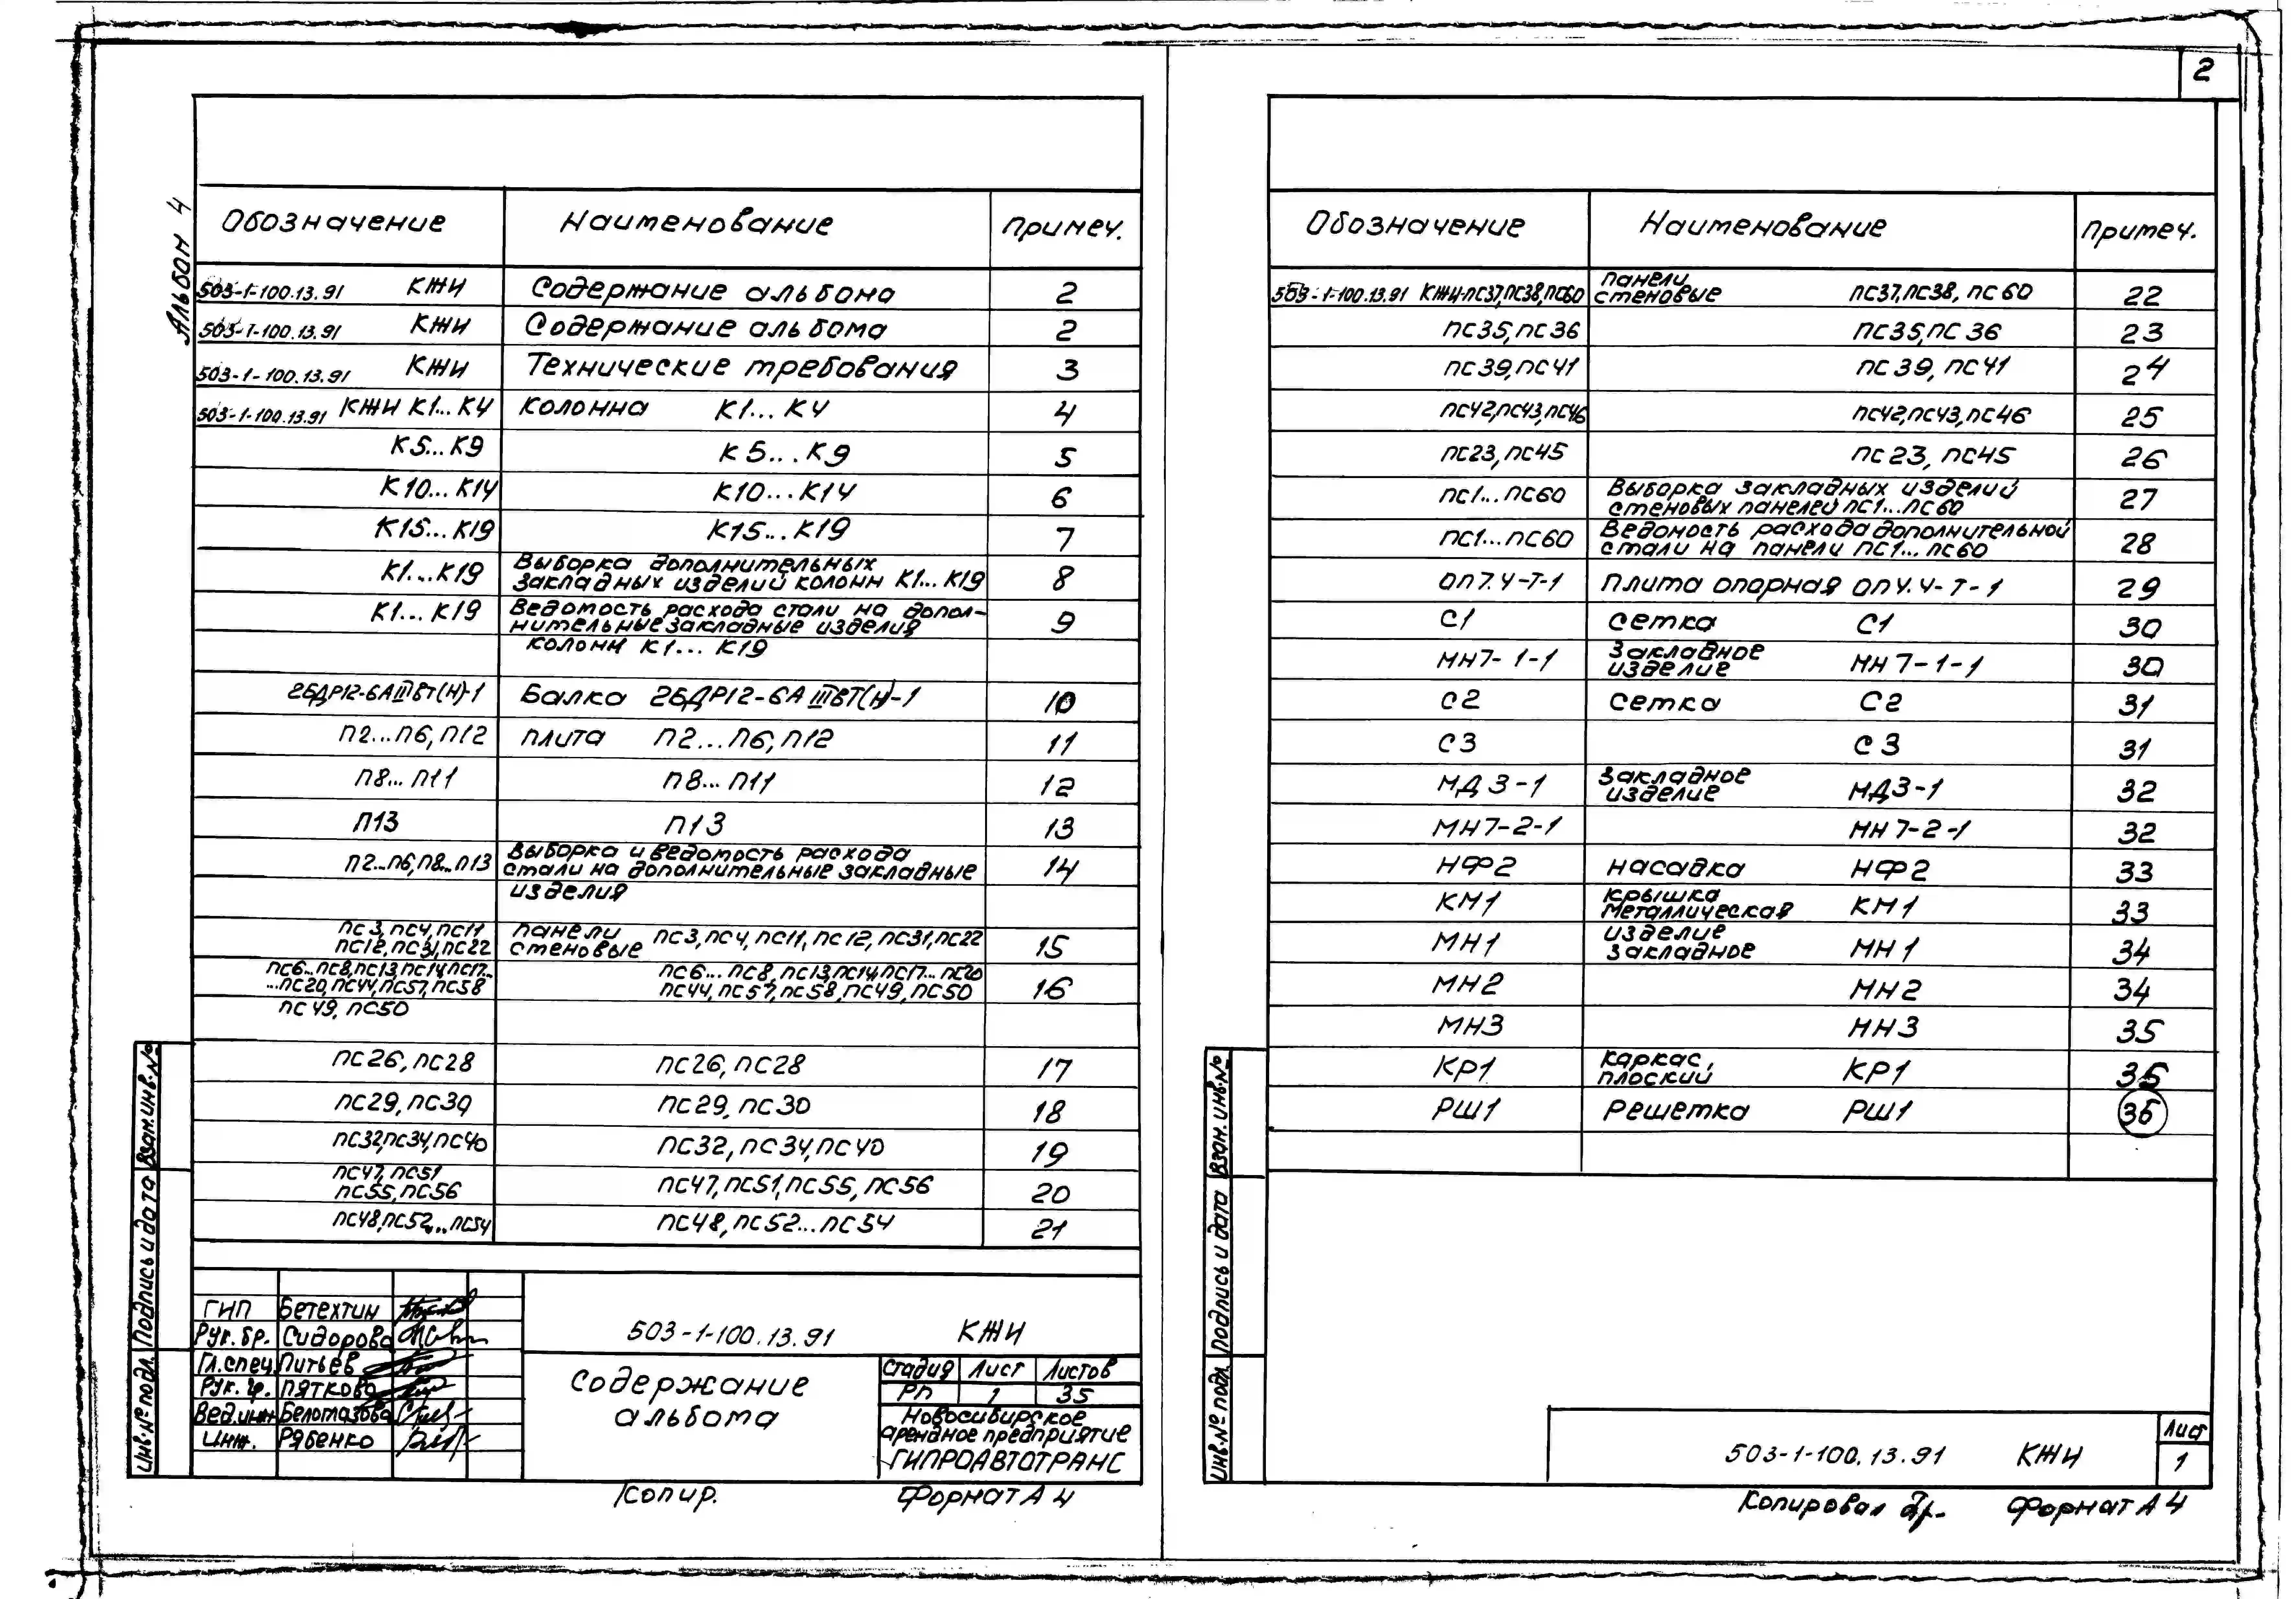 2
Альбом 4
Обозначение Наименование Примеч.
503-1-100.13.91 КЖИ Содержание альбома 2
503-1-100.13.91 КЖИ Содержание альбома 2
503-1-100.13.91 КЖИ Технические требования 3
503-1-100.13.91 КЖИ К1...К4 Колонна К1...К4 4
К5...К9 К5...К9 5
К10...К14 К10...К14 6
К15...К19 К15...К19 7
К1...К19 Выборка дополнительных
закладных изделий колонн К1...К19 8
К1...К19 Ведомость расхода стали на допол-
нительные закладные изделия 9
колонн К1...К19
2БДР12-6АIIIвТ(Н)-1 Балка 2БДР12-6АIIIвТ(Н)-1 10
П2...П6, П12 плита П2...П6, П12 11
П8...П11 П8...П11 12
П13 П13 13
П2...П6, П8...П13 Выборка и ведомость расхода
стали на дополнительные закладные 14
изделия
ПС3, ПС4, ПС11 панели
ПС12, ПС31, ПС22 стеновые ПС3, ПС4, ПС11, ПС12, ПС31, ПС22 15
ПС6...ПС8, ПС13, ПС14, ПС17... ПС6...ПС8, ПС13, ПС14, ПС17...ПС20
...ПС20, ПС44, ПС57, ПС58 ПС44, ПС57, ПС58, ПС49, ПС50 16
ПС49, ПС50
ПС26, ПС28 ПС26, ПС28 17
ПС29, ПС30 ПС29, ПС30 18
ПС32, ПС34, ПС40 ПС32, ПС34, ПС40 19
ПС47, ПС51
ПС55, ПС56 ПС47, ПС51, ПС55, ПС56 20
ПС48, ПС52...ПС54 ПС48, ПС52...ПС54 21
Взам. инв. №
Подпись и дата
Инв. № подл.
ГИП Бетехтин
Рук. бр. Сидорова
Гл. спец. Питьев
Рук. гр. Пяткова
Вед. инж. Беломазова
Инж. Рябенко
503-1-100.13.91 КЖИ
Содержание
альбома
Стадия Лист Листов
РП 1 35
Новосибирское
арендное предприятие
ГИПРОАВТОТРАНС
Копир. Формат А4
Обозначение Наименование Примеч.
503-1-100.13.91 КЖИ-ПС37, ПС38, ПС60 панели
стеновые ПС37, ПС38, ПС60 22
ПС35, ПС36 ПС35, ПС36 23
ПС39, ПС41 ПС39, ПС41 24
ПС42, ПС43, ПС46 ПС42, ПС43, ПС46 25
ПС23, ПС45 ПС23, ПС45 26
ПС1...ПС60 Выборка закладных изделий
стеновых панелей ПС1...ПС60 27
ПС1...ПС60 Ведомость расхода дополнительной
стали на панели ПС1...ПС60 28
ОП7.4-Т-1 Плита опорная ОП4.4-Т-1 29
С1 сетка С1 30
МН7-1-1 Закладное
изделие МН7-1-1 30
С2 сетка С2 31
С3 С3 31
МД3-1 Закладное
изделие МД3-1 32
МН7-2-1 МН7-2-1 32
НФ2 насадка НФ2 33
КМ1 крышка
металлическая КМ1 33
МН1 изделие
закладное МН1 34
МН2 МН2 34
МН3 МН3 35
КР1 каркас
плоский КР1 35
РШ1 Решетка РШ1 36
Взам. инв. №
Подпись и дата
Инв. № подл.
503-1-100.13.91 КЖИ
Лист
1
Копировал Формат А4